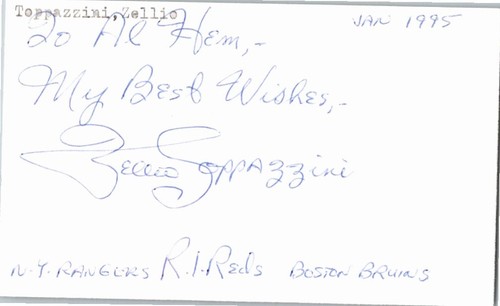 Toppazzini,Zellio
JAN 1995
To Al Hem,-
My Best Wishes,-
Zellio Toppazzini
N.Y. RANGERS R.I. Reds BOSTON BRUINS